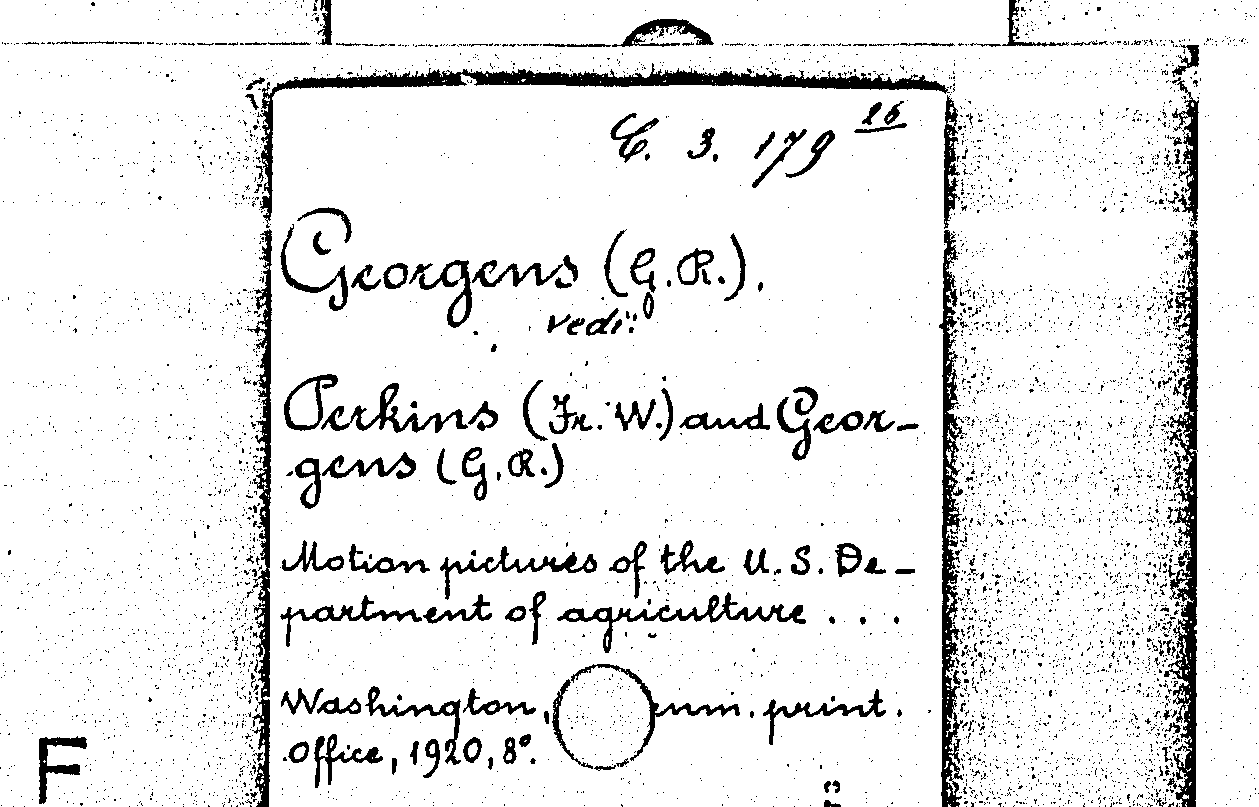 C. 3. 179 26
Georgens (G. R.).
vedi:
Perkins (Fr. W.) and Geor-
gens (G. R.)
Motion pictures of the U. S. De-
partment of agriculture . . .
Washington, print.
Office, 1920, 8°.
F